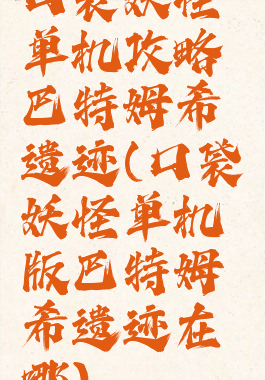 口袋妖怪
单机攻略
巴特姆希
遗迹(口袋
妖怪单机
版巴特姆
希遗迹在
哪)